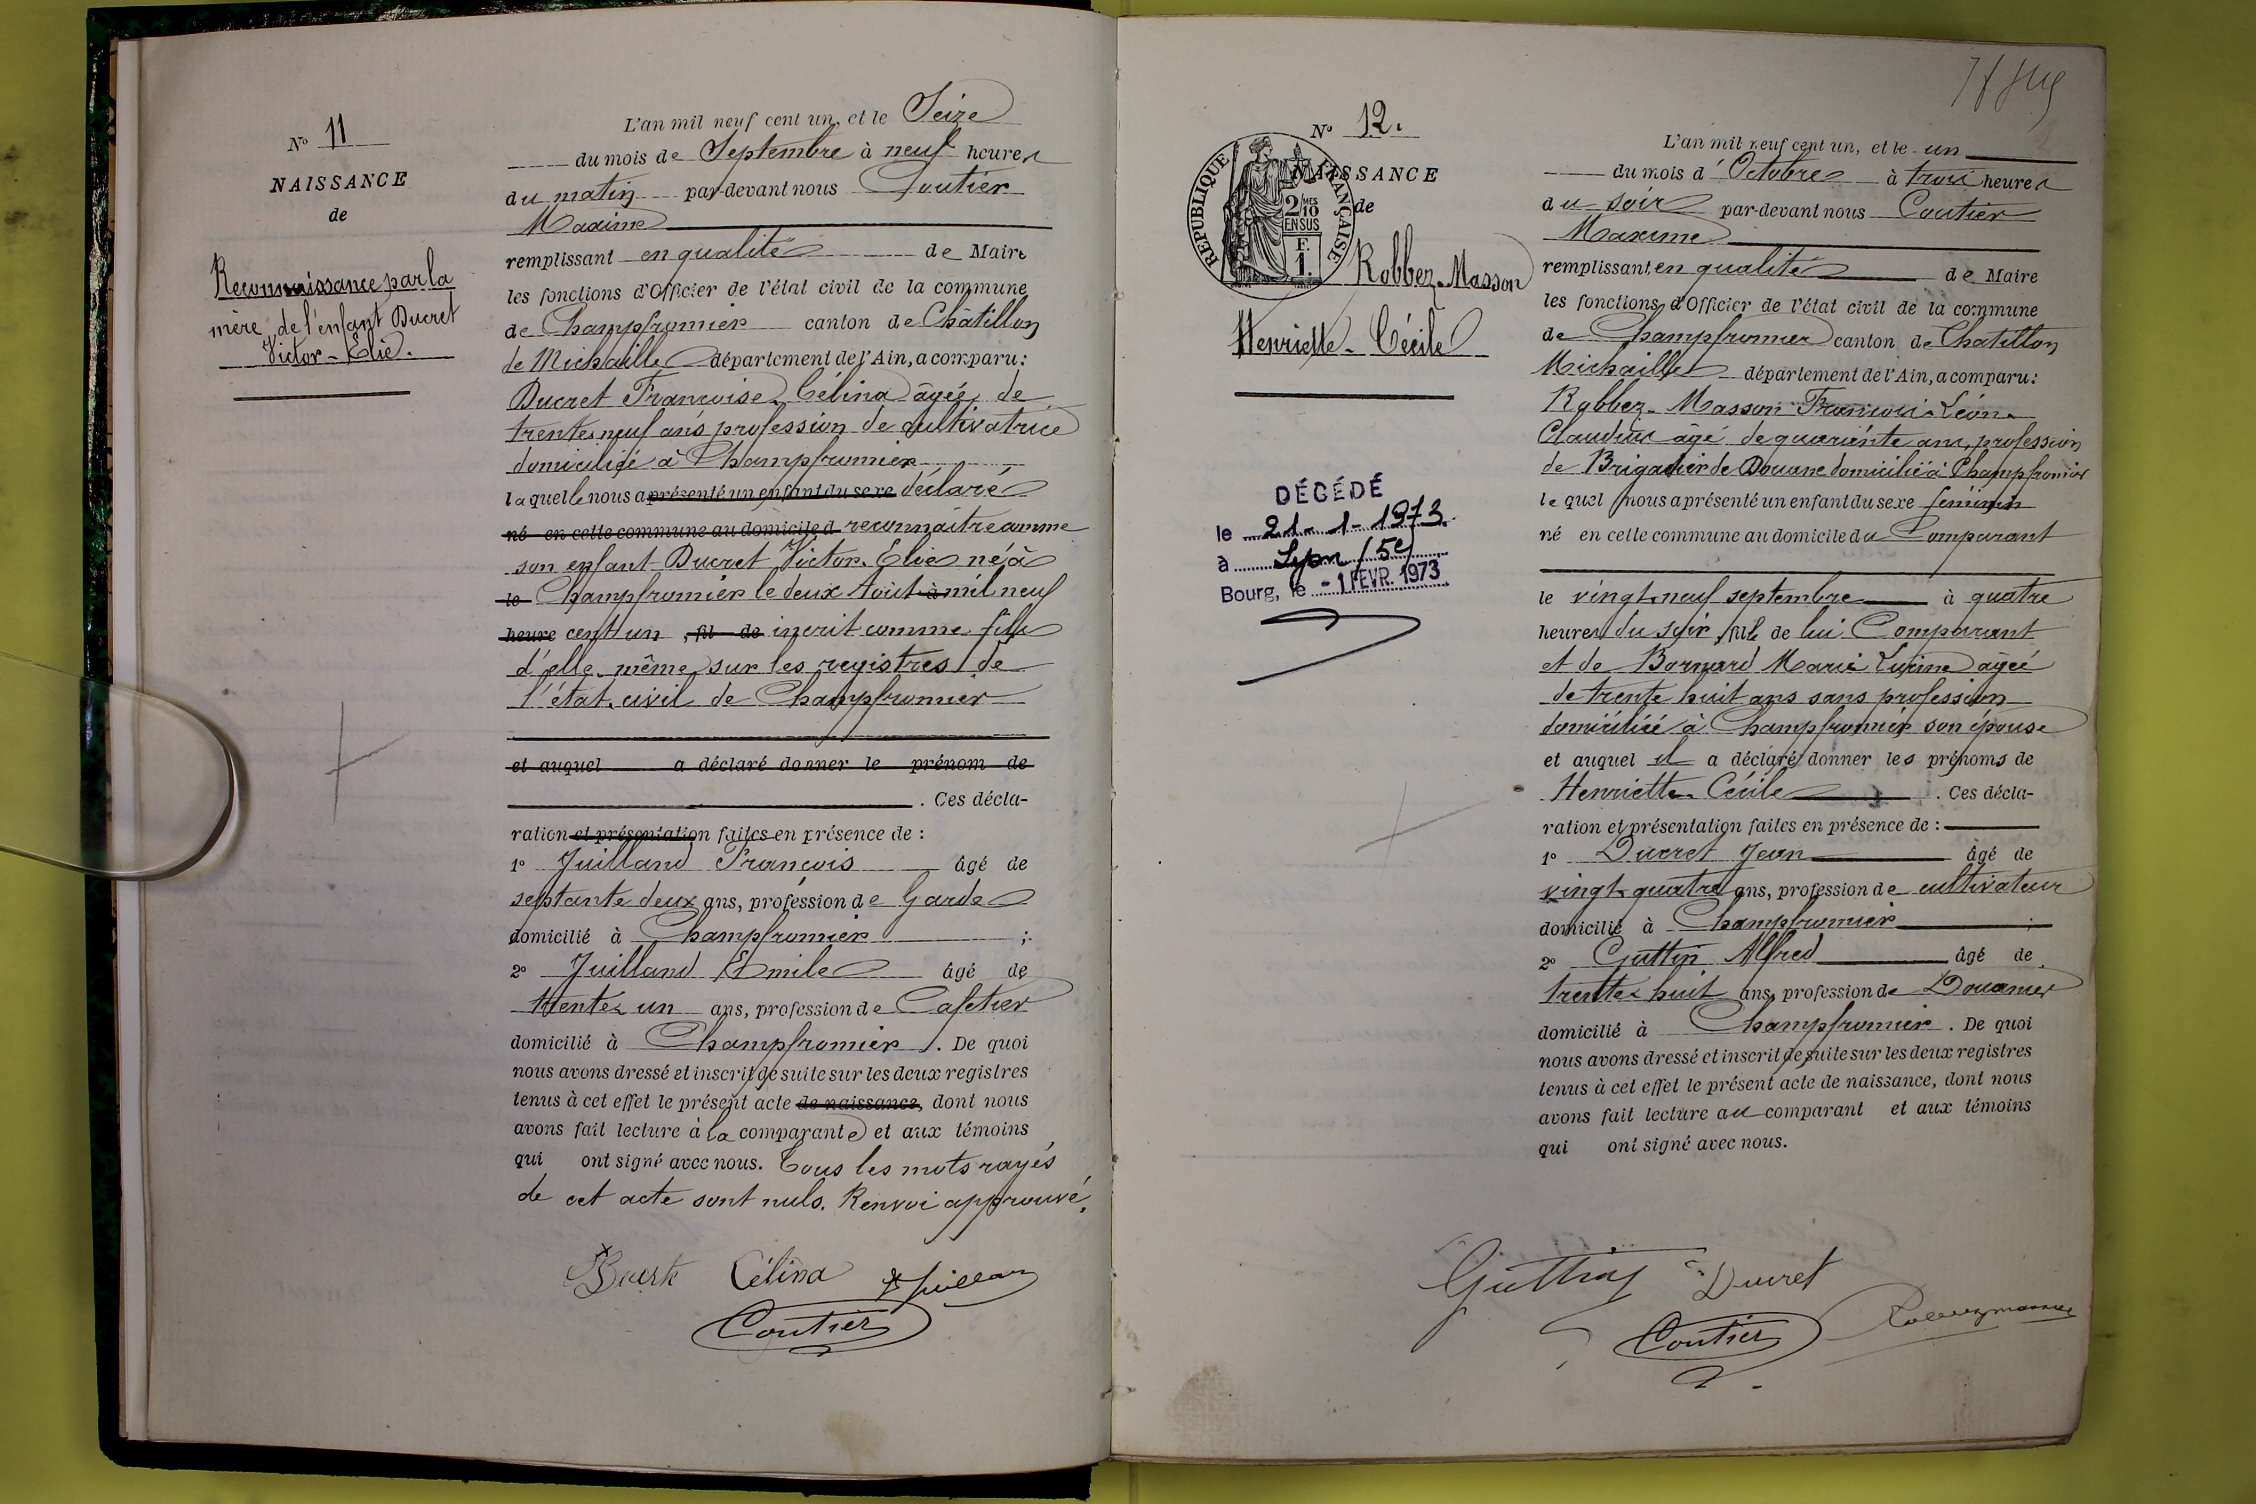 No 11
NAISSANCE
de
Reconnaissance par la
mère de l'enfant Ducret
Victor-Elie.
L'an mil neuf cent un, et le Seize
du mois de Septembre à neuf heures
du matin par-devant nous Coutier
Maxime
remplissant en qualité de Maire
les fonctions d'Officier de l'état civil de la commune
de Champfromier canton de Châtillon
de Michaille département de l'Ain, a comparu:
Ducret Françoise Célina âgée de
trente neuf ans profession de cultivatrice
domiciliée à Champfromier
laquelle nous a présenté un enfant du sexe déclaré
né en cette commune au domicile d reconnaître comme
son enfant Ducret Victor Élie né à
le Champfromier le deux Août à mil neuf
heure cent un , fil de incrit comme fils
d'elle même sur les registres de
l'état civil de Champfromier
et auquel a déclaré donner le prénom de
. Ces décla-
ration et présentation faites en présence de :
1o Juilland François âgé de
septante deux ans, profession de Garde
domicilié à Champfromier ;
2o Juilland Emile âgé de
trente un ans, profession de Cafetier
domicilié à Champfromier . De quoi
nous avons dressé et inscrit de suite sur les deux registres
tenus à cet effet le présent acte de naissance, dont nous
avons fait lecture à la comparante et aux témoins
qui ont signé avec nous. Tous les mots rayés
de cet acte sont nuls. Renvoi approuvé.
Célina Juillan
Coutier
No 12.
NAISSANCE
de
RÉPUBLIQUE FRANÇAISE
2 MES
10
EN SUS
F.
1.
Robbez-Masson
Henriette-Cécile
DÉCÉDÉ
le 21-1-1973
à Lyon (5e)
Bourg, le -1 FEVR. 1973
L'an mil neuf cent un, et le un
du mois d'Octobre à trois heures
du soir par-devant nous Coutier
Maxime
remplissant en qualité de Maire
les fonctions d'Officier de l'état civil de la commune
de Champfromier canton de Chatillon
Michaille département de l'Ain, a comparu:
Robbez-Masson François Léon
Claudius âgé de quarante ans, profession
de Brigadier de Douane domicilié à Champfromier
lequel nous a présenté un enfant du sexe féminin
né en cette commune au domicile du Comparant
le vingt neuf septembre à quatre
heures du soir, fille de lui Comparant
et de Marie âgée
de trente huit ans sans profession
domiciliée à Champfromier son épouse
et auquel il a déclaré donner les prénoms de
Henriette Cécile . Ces décla-
ration et présentation faites en présence de :
1o Ducret Jean âgé de
vingt quatre ans, profession de cultivateur
domicilié à Champfromier ;
2o Guttin Alfred âgé de
trente huit ans, profession de Douanier
domicilié à Champfromier . De quoi
nous avons dressé et inscrit de suite sur les deux registres
tenus à cet effet le présent acte de naissance, dont nous
avons fait lecture au comparant et aux témoins
qui ont signé avec nous.
Guttin Ducret
Coutier Robbezmasson